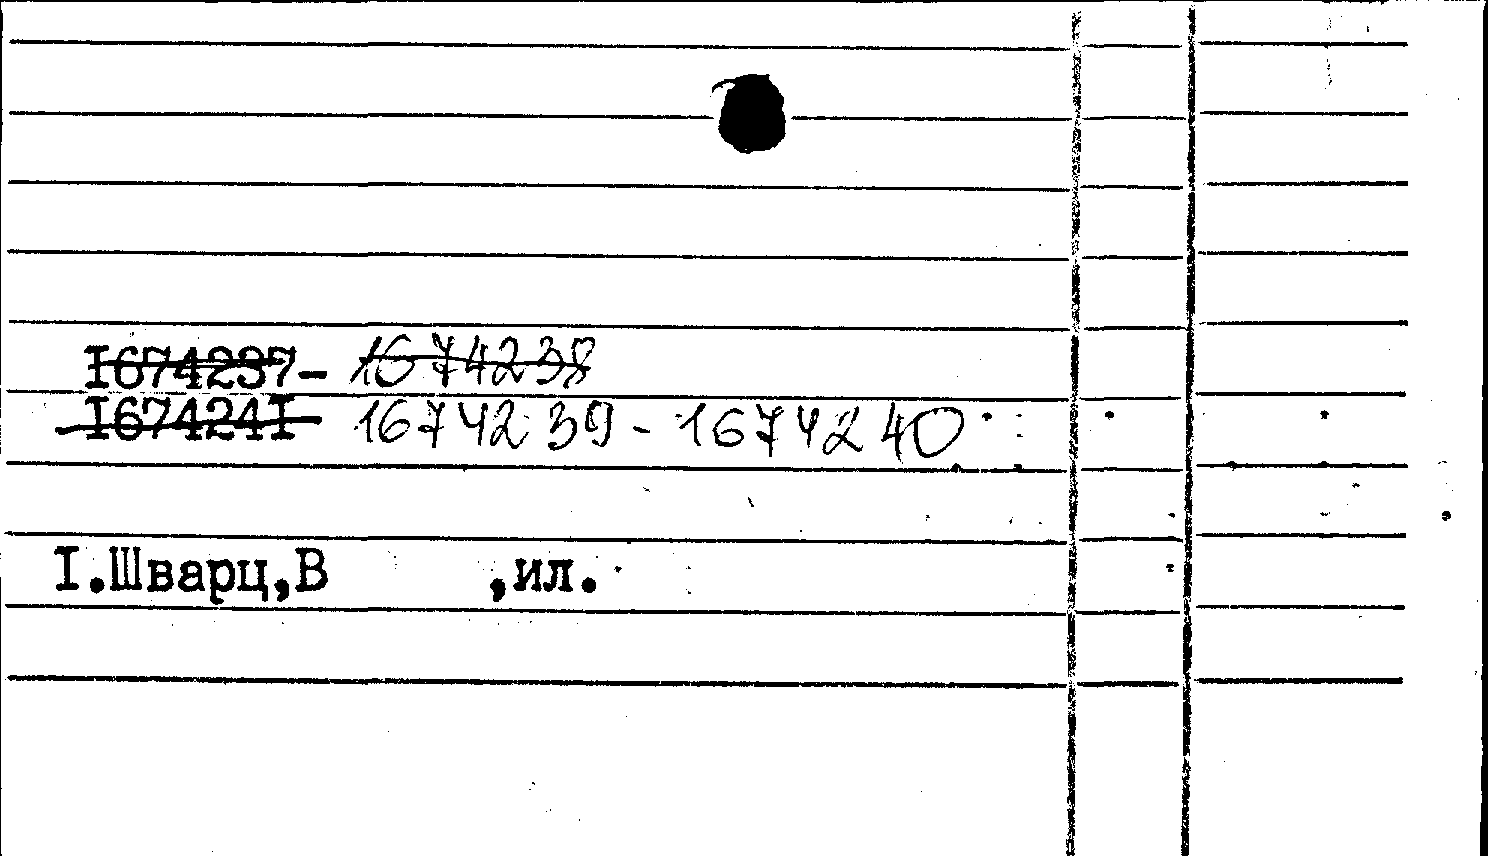 I674237- 1674238
I674241 1674239 - 1674240
I.Шварц,В ,ил.